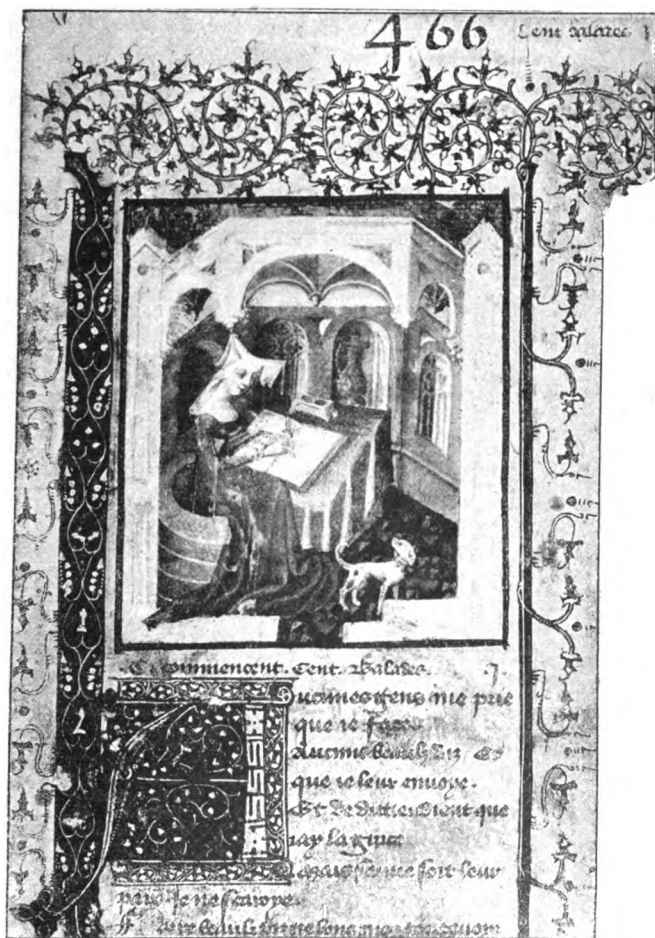 466
Cent balades
1
2
Ci commencent. Cent. Balades. .j.
Aucunes gens me prie
que ie face
Aucuns beaulz diz Et
que ie leur envoye.
Et de dittier dient que
iay la grace
Mais sauue soit leur
paix Je ne scauroye